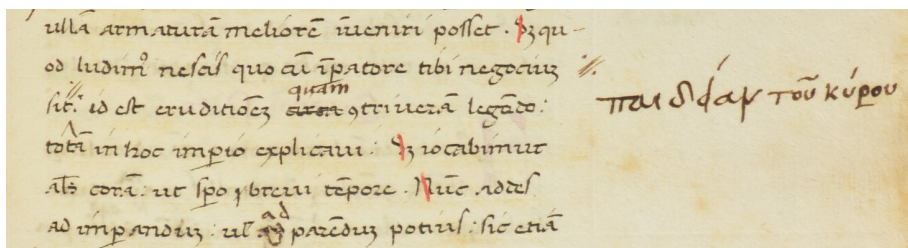 ullā armaturā meliorē īveniri posset. Sꝫ qu-
od ludimꝰ nescis quo cū īꝑatore tibi negociuꝫ
sit: id est eruditiōeꝫ quam ꝯtriverā legēdo:
totā in hoc imꝑio explicavi: Sꝫ iocabimur
alꝰ corā: ut sꝑo brevi tēpore. Nūc ades
ad imꝑanduꝫ: ul ad parēduꝫ potius: sic etiā
παιδίαν τοῦ κύρου